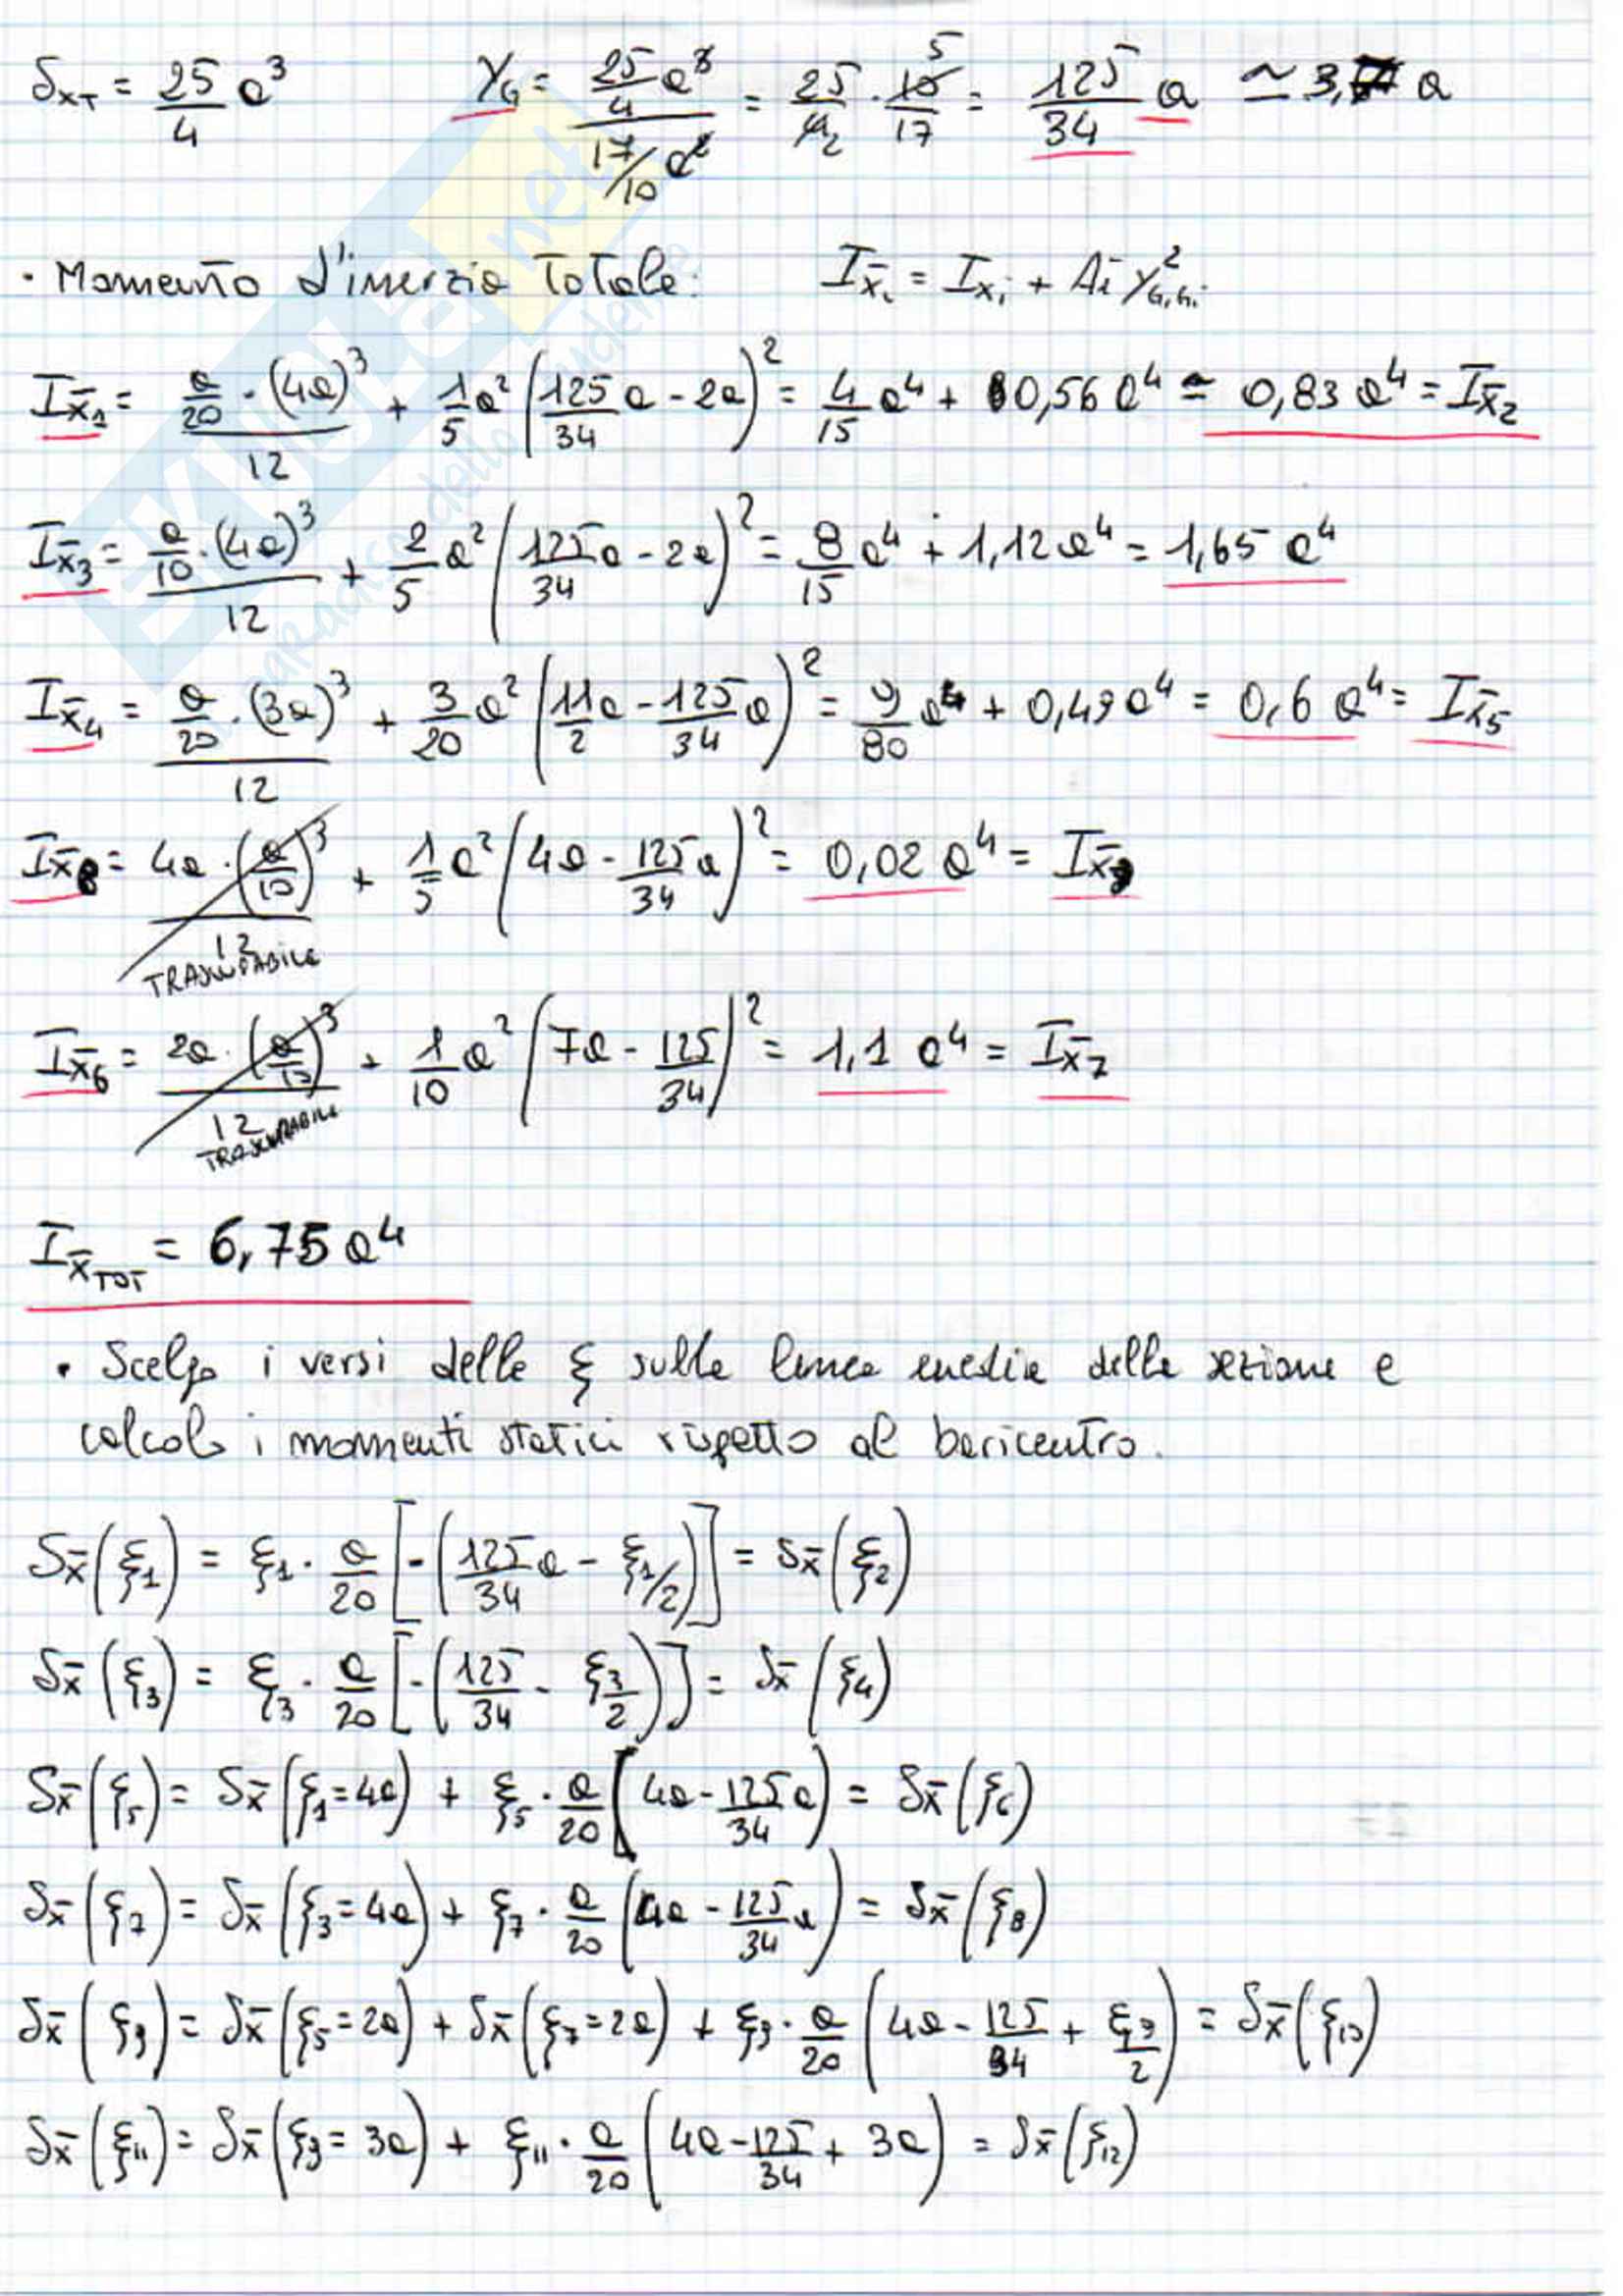 S_XT = 25/4 a³   Y_G = (25/4 a³)/(17/10 a²) = 25/4₂ · 10⁵/17 = 125/34 a ≃ 3,7 a
· Momento d'inerzia Totale:   I_x̄i = I_xi + Ai Y²_G,Gi
I_x̄1 = (a/20 · (4a)³)/12 + 1/5 a² (125/34 a - 2a)² = 4/15 a⁴ + 0,56 a⁴ ≃ 0,83 a⁴ = I_x̄2
I_x̄3 = (a/10 · (4a)³)/12 + 2/5 a² (125/34 a - 2a)² = 8/15 a⁴ + 1,12 a⁴ = 1,65 a⁴
I_x̄4 = (a/20 · (3a)³)/12 + 3/20 a² (11/2 a - 125/34 a)² = 9/80 a⁴ + 0,49 a⁴ = 0,6 a⁴ = I_x̄5
I_x̄8 = (4a · (a/10)³)/12 + 1/5 a² (4a - 125/34 a)² = 0,02 a⁴ = I_x̄9
TRASCURABILE
I_x̄6 = (2a · (a/10)³)/12 + 1/10 a² (7a - 125/34)² = 1,1 a⁴ = I_x̄7
TRASCURABILE
I_x̄TOT = 6,75 a⁴
· Scelgo i versi delle ξ sulla linea media della sezione e
calcolo i momenti statici rispetto al baricentro.
S_x̄(ξ1) = ξ1 · a/20 [-(125/34 a - ξ1/2)] = S_x̄(ξ2)
S_x̄(ξ3) = ξ3 · a/20 [-(125/34 - ξ3/2)] = S_x̄(ξ4)
S_x̄(ξ5) = S_x̄(ξ1=4a) + ξ5 · a/20 (4a - 125/34 a) = S_x̄(ξ6)
S_x̄(ξ7) = S_x̄(ξ3=4a) + ξ7 · a/20 (4a - 125/34 a) = S_x̄(ξ8)
S_x̄(ξ9) = S_x̄(ξ5=2a) + S_x̄(ξ7=2a) + ξ9 · a/20 (4a - 125/34 + ξ9/2) = S_x̄(ξ10)
S_x̄(ξ11) = S_x̄(ξ9=3a) + ξ11 · a/20 (4a - 125/34 + 3a) = S_x̄(ξ12)